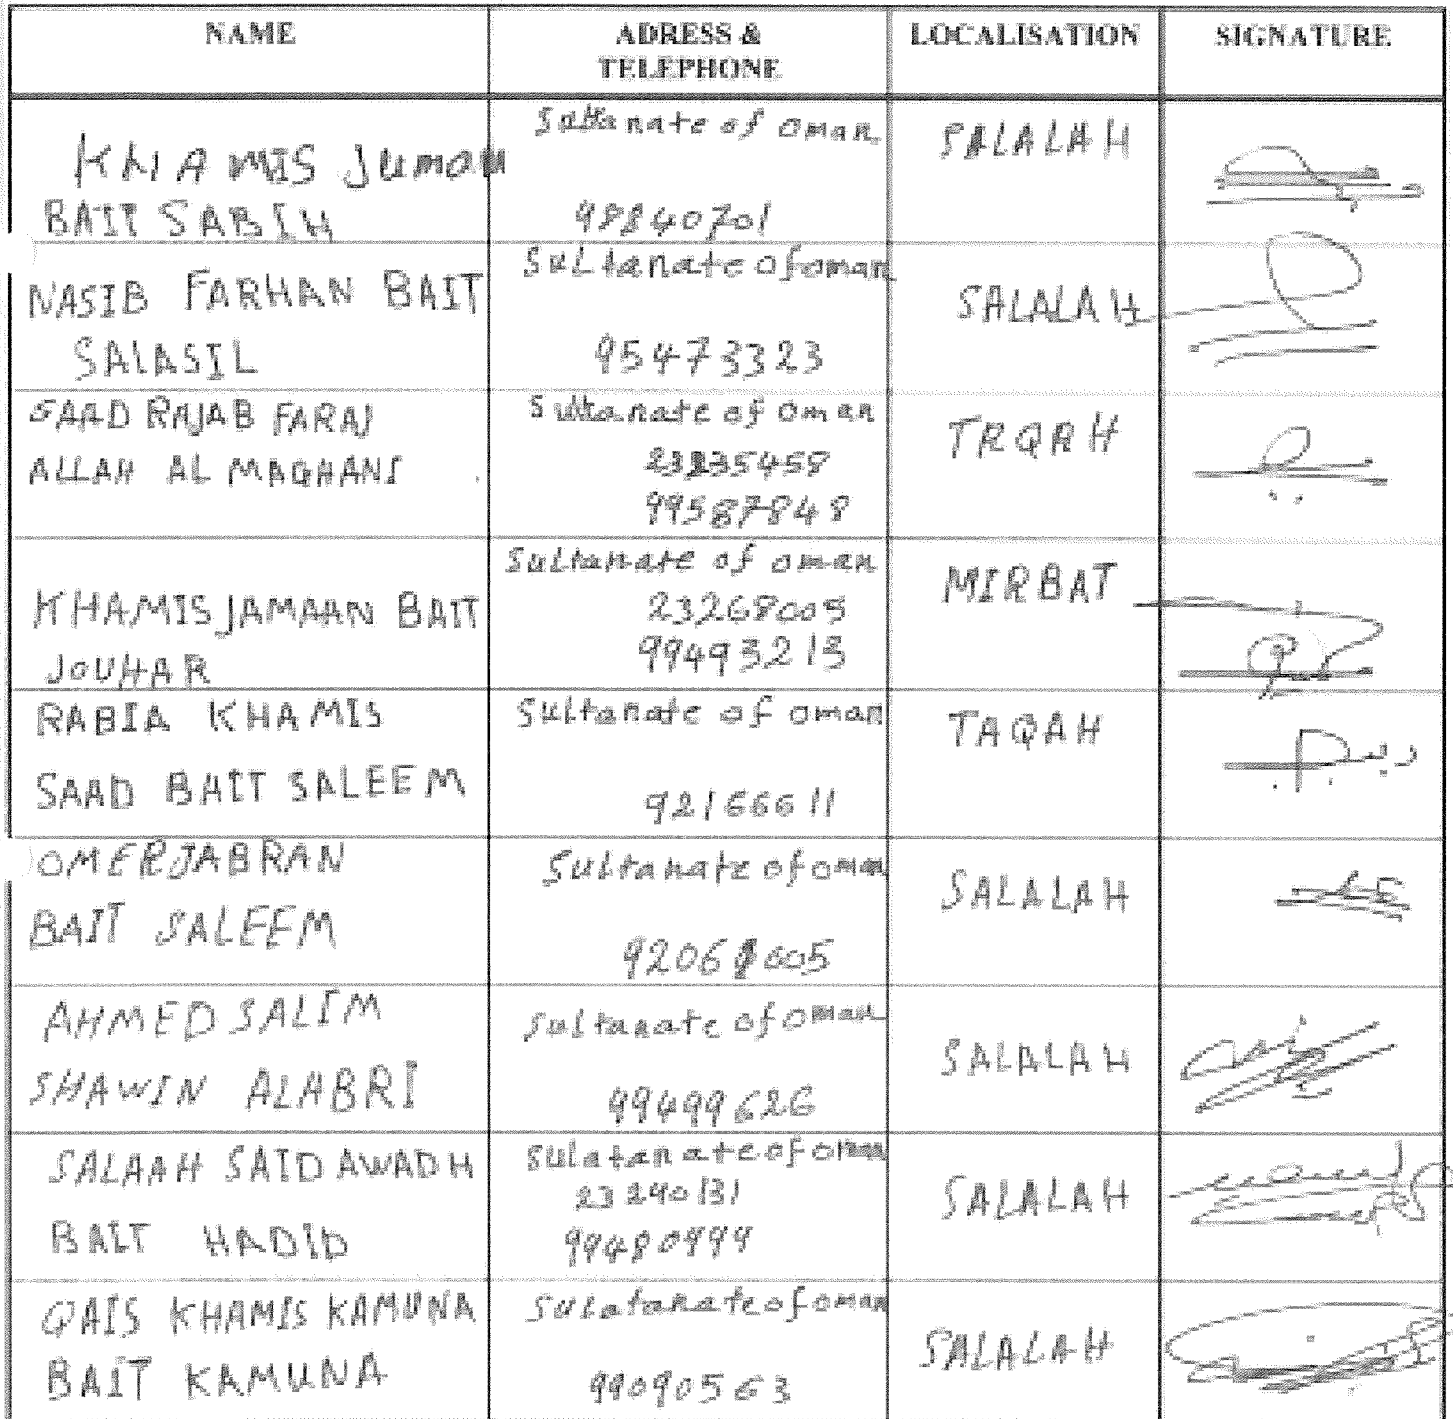 NAME
ADRESS &
TELEPHONE
LOCALISATION
SIGNATURE
KHAMIS Jumaan
BAIT SABIH
Sultanate of Oman
99840701
SALALAH
NASIB FARHAN BAIT
SALASIL
Sultanate of oman
95473323
SALALAH
SAAD RAJAB FARAJ
ALLAH AL MAQHANI
Sultanate of Oman
23235458
99587848
TAQAH
KHAMIS JAMAAN BAIT
JOUHAR
Sultanate of oman
23268005
99493213
MIRBAT
RABIA KHAMIS
SAAD BAIT SALEEM
Sultanate of oman
92166611
TAQAH
OMER JABRAN
BAIT SALEEM
Sultanate of oman
SALALAH
AHMED SALIM
SHAWIN ALABRI
Sultanate of Oman
99499626
SALALAH
SALAAH SAID AWADH
BAIT HADID
Sulatanate of oman
23240131
SALALAH
QAIS KHAMIS KAMUNA
BAIT KAMUNA
Sulatanate of oman
99090563
SALALAH